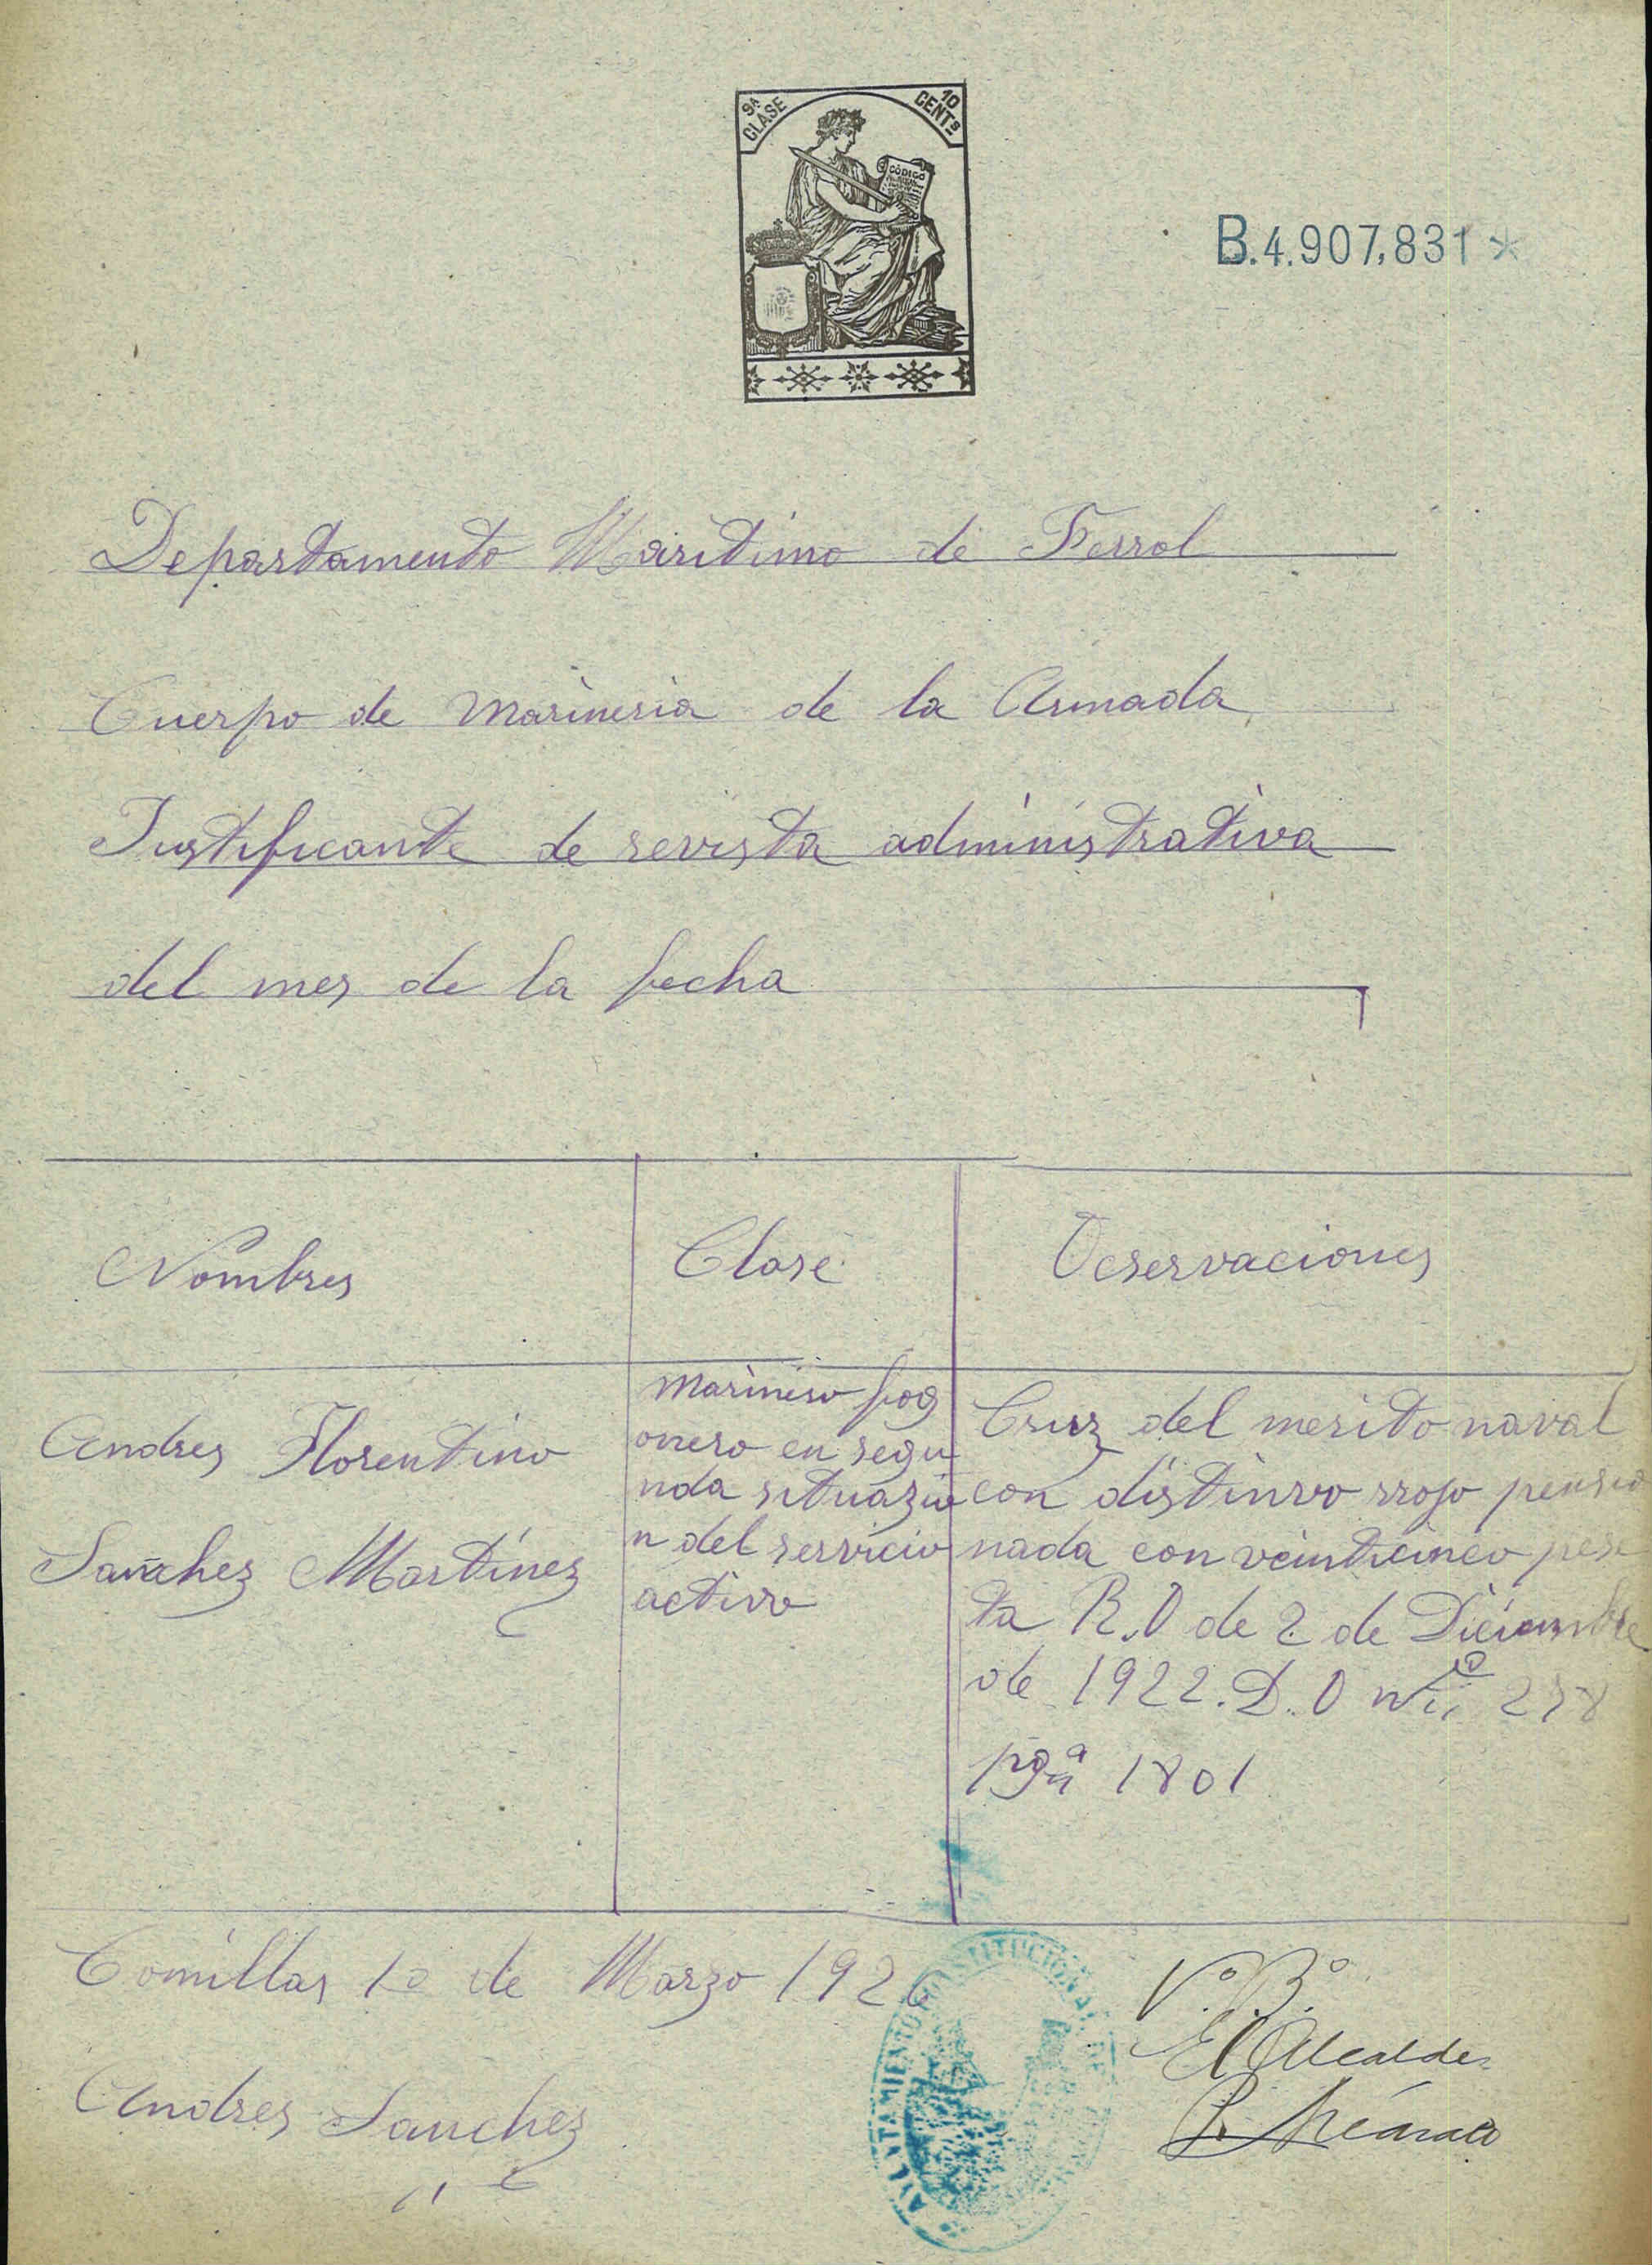 9ª CLASE
10 CENTs
CÓDIGO
B.4.907,831*
Departamento Maritimo de Ferrol
Cuerpo de Marineria de la Armada
Justificante de revista administrativa
del mes de la fecha
Nombres
Clase
Ocservaciones
Andres Florentino
Sanchez Martinez
Marinero fog
onero en segu
nda situazio
n del servicio
activo
Cruz del merito naval
con distinvo rrojo pensio
nada con veinticinco pese
ta R.O de 2 de Diciembre
de 1922. D.O 278
pgª 1801
Comillas 1º de Marzo 192
Andres Sanchez
AYUNTAMIENTO CONSTITUCIONAL DE
V.º B.º
El Alcalde